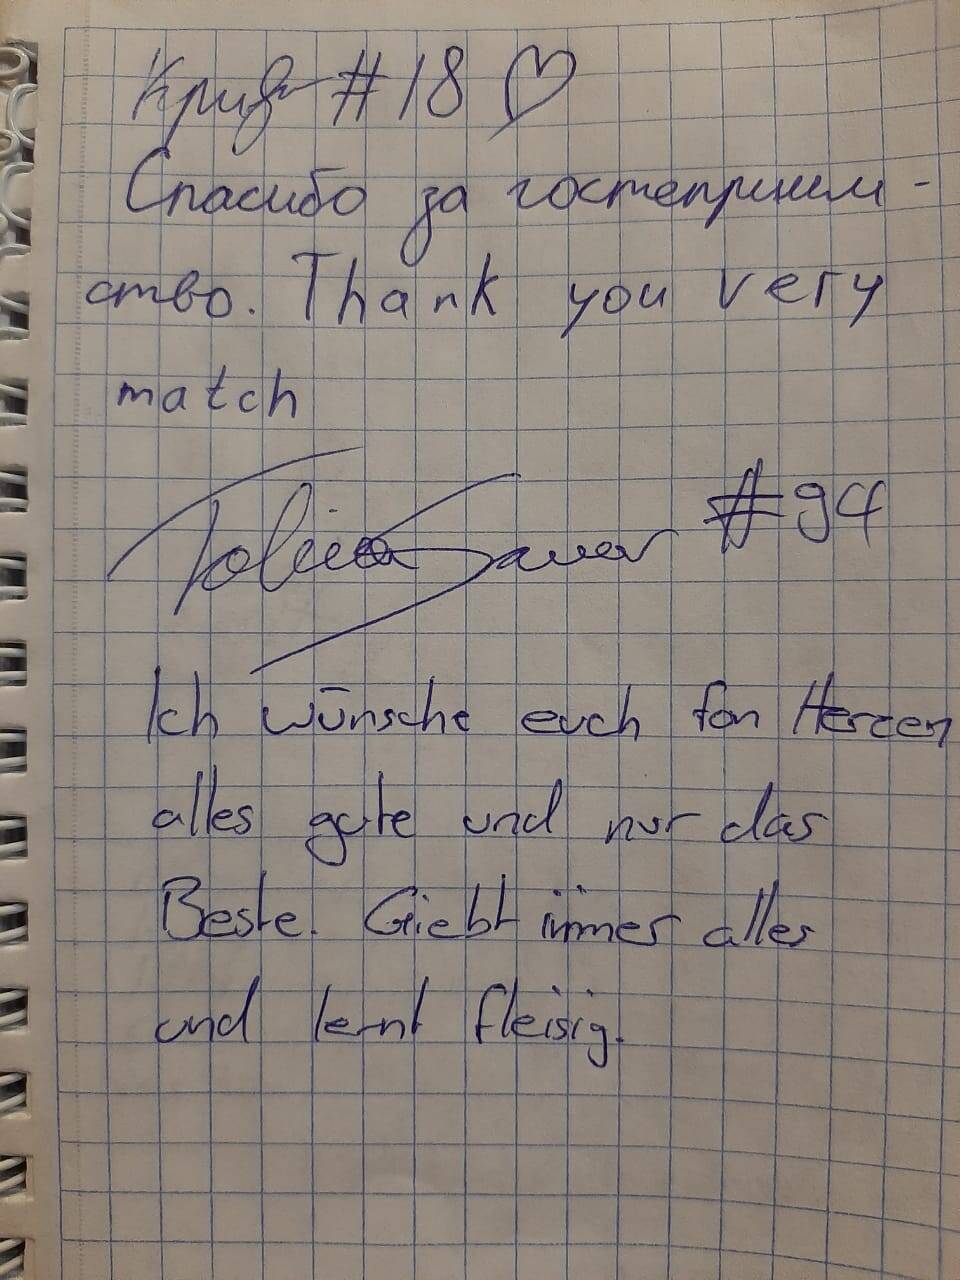 #18
Спасибо за гостеприим-
ство. Thank you very
match
#94
Ich wünsche euch fon Herzen
alles gute und nur das
Beste. Giebt immer alles
und lernt fleisig.